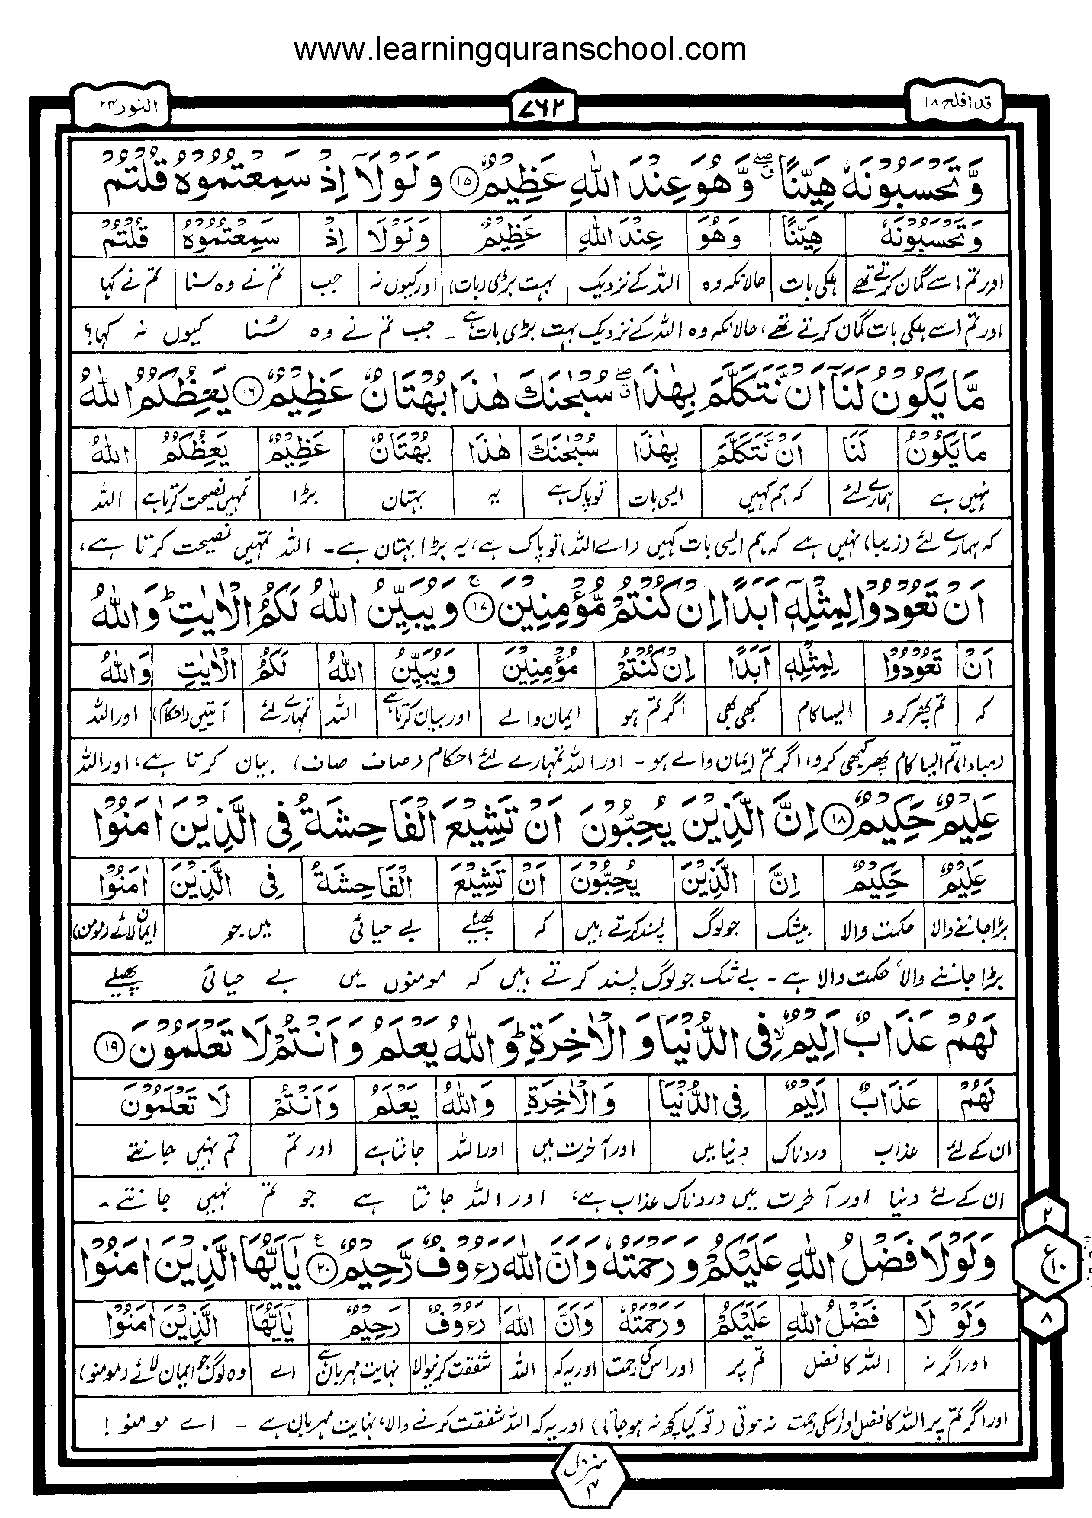 www.learningquranschool.com
قد افلح ١٨
٧٦٢
النور ٢٤
وَّتَحْسَبُوْنَهٗ هَيِّنًا ۖ وَّهُوَ عِنْدَ اللّٰهِ عَظِيْمٌ ۝١٥ وَلَوْلَاۤ اِذْ سَمِعْتُمُوْهُ قُلْتُمْ
وَتَحْسَبُوْنَهٗ هَيِّنًا وَهُوَ عِنْدَ اللّٰهِ عَظِيْمٌ وَلَوْلَا اِذْ سَمِعْتُمُوْهُ قُلْتُمْ
اور تم اسے گمان کرتے تھے ہلکی بات حالانکہ وہ اللہ کے نزدیک بہت بڑی (بات) اور کیوں نہ جب تم نے وہ سنا تم نے کہا
اور تم اسے ہلکی بات گمان کرتے تھے، حالانکہ وہ اللہ کے نزدیک بہت بڑی بات ہے۔ جب تم نے وہ سُنا کیوں نہ کہا؟
مَّا يَكُوْنُ لَنَاۤ اَنْ نَّتَكَلَّمَ بِهٰذَا ۖ سُبْحٰنَكَ هٰذَا بُهْتَانٌ عَظِيْمٌ ۝١٦ يَعِظُكُمُ اللّٰهُ
مَا يَكُوْنُ لَنَا اَنْ نَتَكَلَّمَ بِهٰذَا سُبْحٰنَكَ هٰذَا بُهْتَانٌ عَظِيْمٌ يَعِظُكُمُ اللّٰهُ
نہیں ہے ہمارے لئے کہ ہم کہیں ایسی بات تو پاک ہے یہ بہتان بڑا تمہیں نصیحت کرتا ہے اللہ
کہ ہمارے لئے (زیبا) نہیں ہے کہ ہم ایسی بات کہیں (اے اللہ) تو پاک ہے، یہ بڑا بہتان ہے۔ اللہ تمہیں نصیحت کرتا ہے،
اَنْ تَعُوْدُوْا لِمِثْلِهٖۤ اَبَدًا اِنْ كُنْتُمْ مُّؤْمِنِيْنَ ۝١٧ وَيُبَيِّنُ اللّٰهُ لَكُمُ الْاٰيٰتِ ؕ وَاللّٰهُ
اَنْ تَعُوْدُوْا لِمِثْلِهٖ اَبَدًا اِنْ كُنْتُمْ مُؤْمِنِيْنَ وَيُبَيِّنُ اللّٰهُ لَكُمُ الْاٰيٰتِ وَاللّٰهُ
کہ تم پھر کرو ایسا کام کبھی بھی اگر تم ہو ایمان والے اور بیان کرتا ہے اللہ تمہارے لئے آیتیں (احکام) اور اللہ
(مبادا) تم ایسا کام پھر کبھی کرو، اگر تم ایمان والے ہو۔ اور اللہ تمہارے لئے احکام (صاف صاف) بیان کرتا ہے، اور اللہ
عَلِيْمٌ حَكِيْمٌ ۝١٨ اِنَّ الَّذِيْنَ يُحِبُّوْنَ اَنْ تَشِيْعَ الْفَاحِشَةُ فِى الَّذِيْنَ اٰمَنُوْا
عَلِيْمٌ حَكِيْمٌ اِنَّ الَّذِيْنَ يُحِبُّوْنَ اَنْ تَشِيْعَ الْفَاحِشَةُ فِى الَّذِيْنَ اٰمَنُوْا
بڑا جاننے والا حکمت والا بیشک جو لوگ پسند کرتے ہیں کہ پھیلے بے حیائی میں جو ایمان لائے (مومن)
بڑا جاننے والا حکمت والا ہے۔ بے شک جو لوگ پسند کرتے ہیں کہ مومنوں میں بے حیائی پھیلے
لَهُمْ عَذَابٌ اَلِيْمٌ ۙ فِى الدُّنْيَا وَالْاٰخِرَةِ ؕ وَاللّٰهُ يَعْلَمُ وَاَنْتُمْ لَا تَعْلَمُوْنَ ۝١٩
لَهُمْ عَذَابٌ اَلِيْمٌ فِى الدُّنْيَا وَالْاٰخِرَةِ وَاللّٰهُ يَعْلَمُ وَاَنْتُمْ لَا تَعْلَمُوْنَ
ان کے لئے عذاب دردناک دنیا میں اور آخرت میں اور اللہ جانتا ہے اور تم تم نہیں جانتے
ان کے لئے دنیا اور آخرت میں دردناک عذاب ہے، اور اللہ جانتا ہے جو تم نہیں جانتے۔
وَلَوْلَا فَضْلُ اللّٰهِ عَلَيْكُمْ وَرَحْمَتُهٗ وَاَنَّ اللّٰهَ رَءُوْفٌ رَّحِيْمٌ ۝٢٠ يٰۤاَيُّهَا الَّذِيْنَ اٰمَنُوْا
وَلَوْ لَا فَضْلُ اللّٰهِ عَلَيْكُمْ وَرَحْمَتُهٗ وَاَنَّ اللّٰهَ رَءُوْفٌ رَحِيْمٌ يٰۤاَيُّهَا الَّذِيْنَ اٰمَنُوْا
اور اگر نہ اللہ کا فضل تم پر اور اس کی رحمت اور یہ کہ اللہ شفقت کرنیوالا نہایت مہربان ہے اے وہ لوگ جو ایمان لائے (مومنو)
اور اگر تم پر اللہ کا فضل اور اسکی رحمت نہ ہوتی (تو کیا کچھ نہ ہو جاتا) اور یہ کہ اللہ شفقت کرنے والا، نہایت مہربان ہے۔ اے مومنو!
٢
ع
١٠
٨
منزل ۴